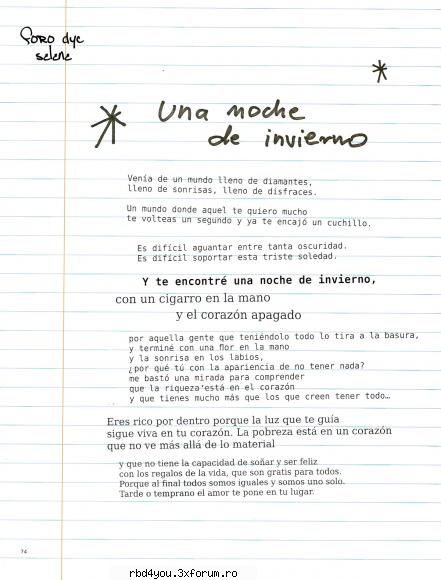 Foro dyc
selene
Una noche
de invierno
Venía de un mundo lleno de diamantes,
lleno de sonrisas, lleno de disfraces.
Un mundo donde aquel te quiero mucho
te volteas un segundo y ya te encajó un cuchillo.
Es difícil aguantar entre tanta oscuridad.
Es difícil soportar esta triste soledad.
Y te encontré una noche de invierno,
con un cigarro en la mano
y el corazón apagado
por aquella gente que teniéndolo todo lo tira a la basura,
y terminé con una flor en la mano
y la sonrisa en los labios,
¿por qué tú con la apariencia de no tener nada?
me bastó una mirada para comprender
que la riqueza está en el corazón
y que tienes mucho más que los que creen tener todo…
Eres rico por dentro porque la luz que te guía
sigue viva en tu corazón. La pobreza está en un corazón
que no ve más allá de lo material
y que no tiene la capacidad de soñar y ser feliz
con los regalos de la vida, que son gratis para todos.
Porque al final todos somos iguales y somos uno solo.
Tarde o temprano el amor te pone en tu lugar.
74
rbd4you.3xforum.ro